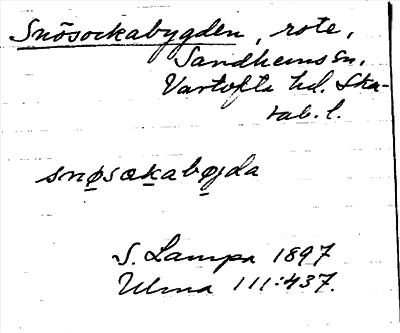 Snösockabygden, rote,
Sandhems sn,
Vartofta hd. Ska-
rab. l.
snøsækabøjda
S. Lampa 1897
Ulma 111:437.